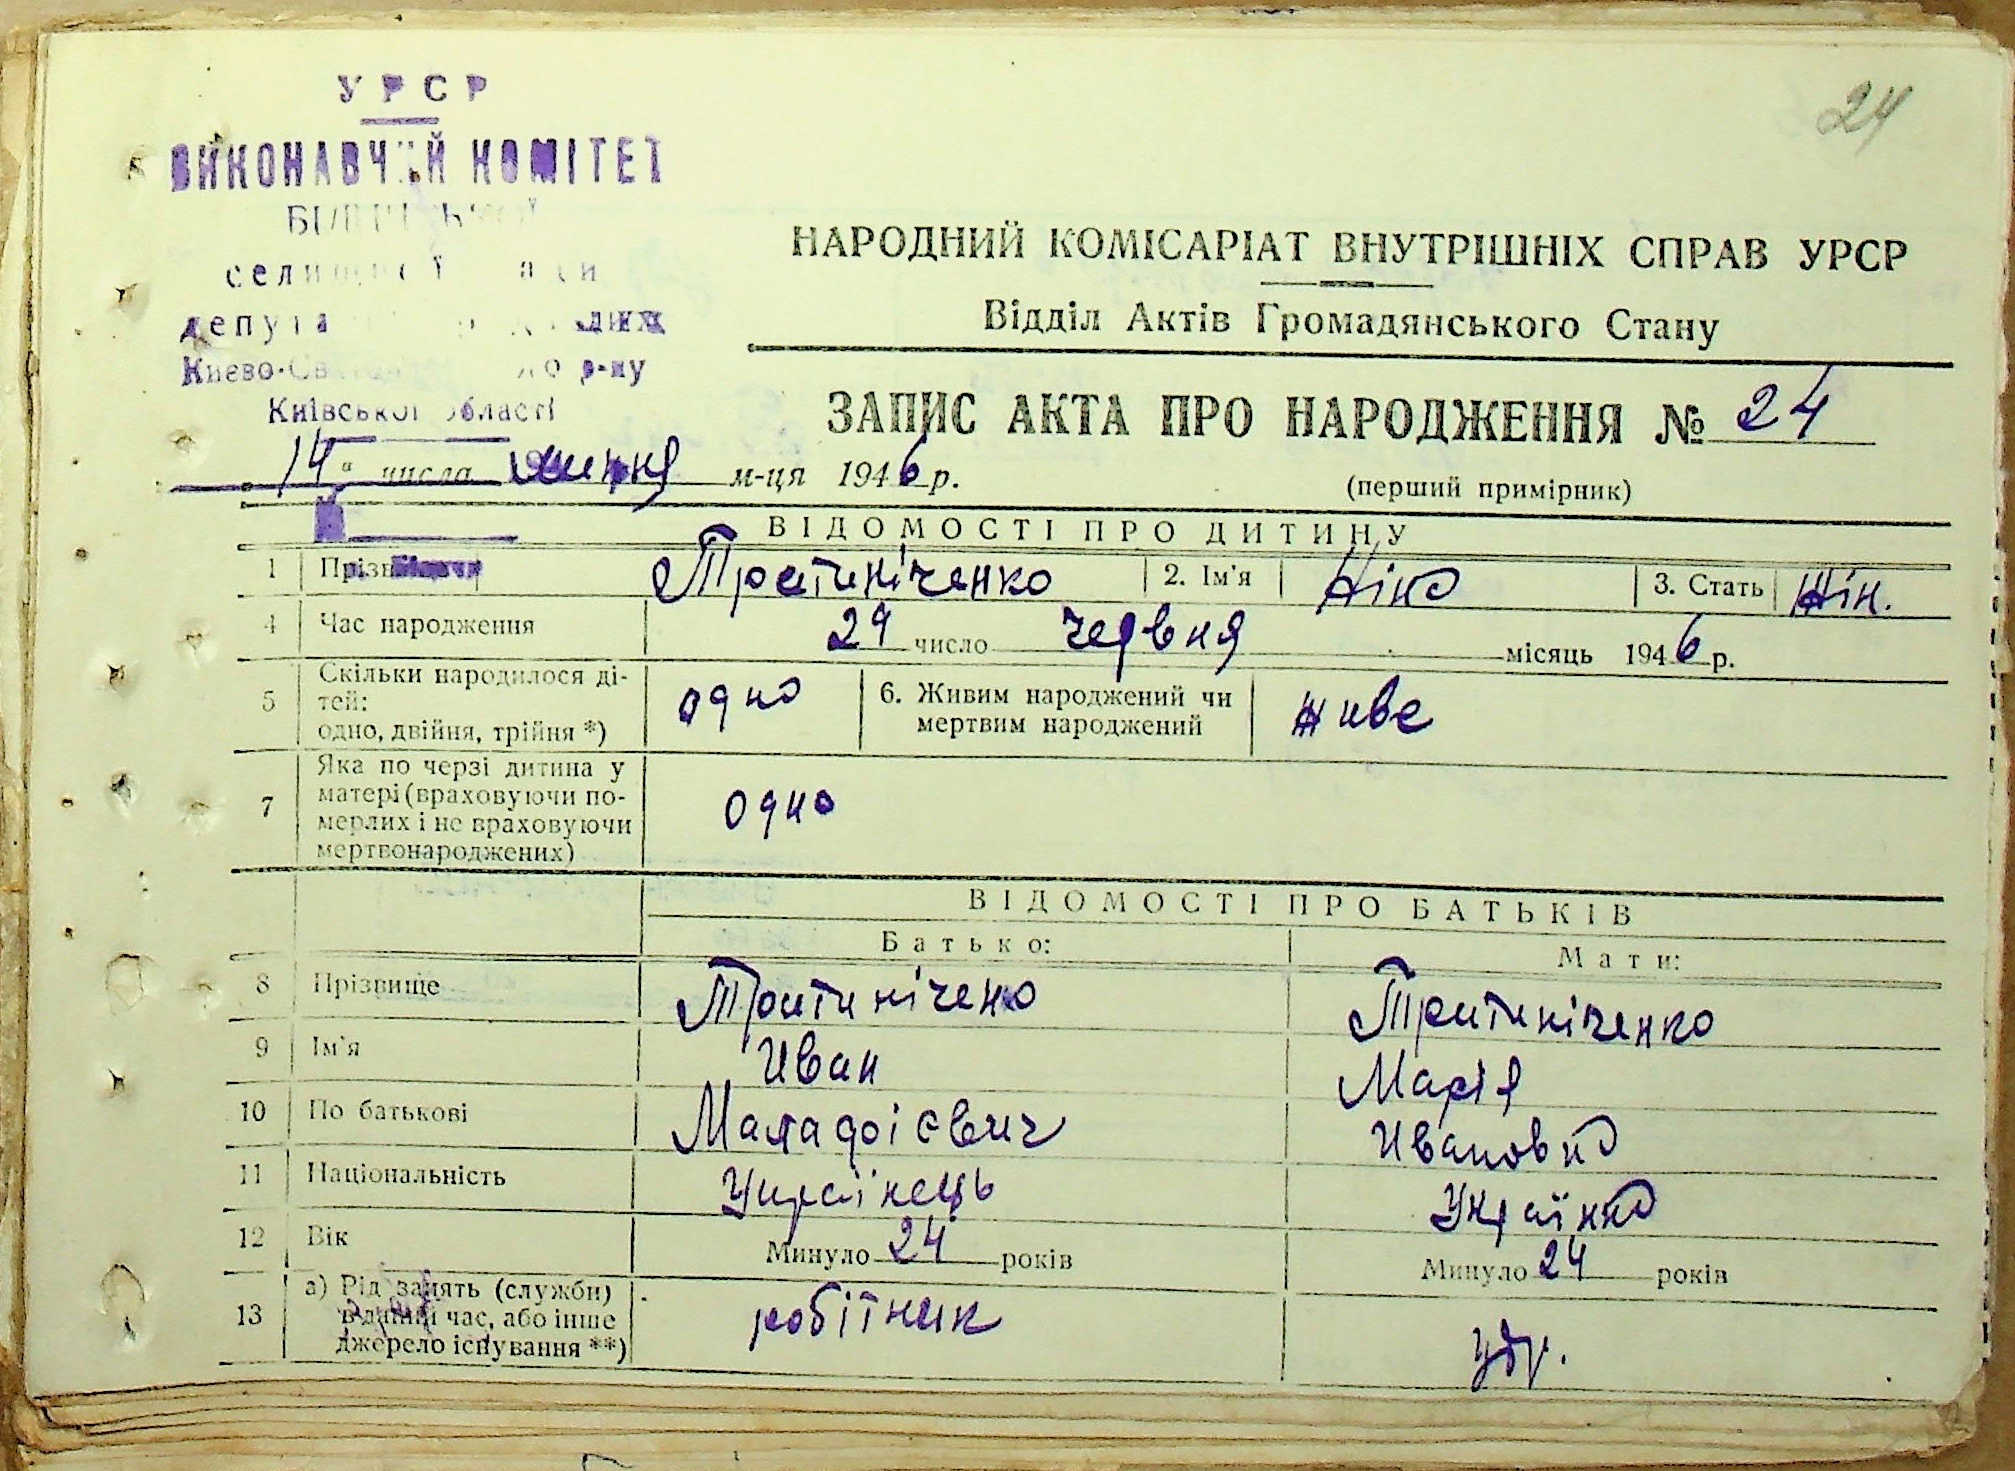 24
УРСР
ВИКОНАВЧИЙ КОМІТЕТ
депута
Києво-
р-ну
Київської області
НАРОДНИЙ КОМІСАРІАТ ВНУТРІШНІХ СПРАВ УРСР
Відділ Актів Громадянського Стану
ЗАПИС АКТА ПРО НАРОДЖЕННЯ № 24
14 " числа липня м-ця 1946 р.
(перший примірник)
ВІДОМОСТІ ПРО ДИТИНУ
1 2. Ім'я Ніна 3. Стать Жін.
4 Час народження 29 число червня місяць 1946 р.
5 Скільки народилося ді-
тей:
одно, двійня, трійня *) одно 6. Живим народжений чи
мертвим народжений живе
7 Яка по черзі дитина у
матері (враховуючи по-
мерлих і не враховуючи
мертвонароджених) одна
ВІДОМОСТІ ПРО БАТЬКІВ
Батько: Мати:
8 Прізвище
9 Ім'я Иван Марія
10 По батькові Ивановна
11 Національність Українець Українка
12 Вік Минуло 24 років Минуло 24 років
13 а) Рід занять (служби)
в даний час, або інше
джерело існування **) робітник